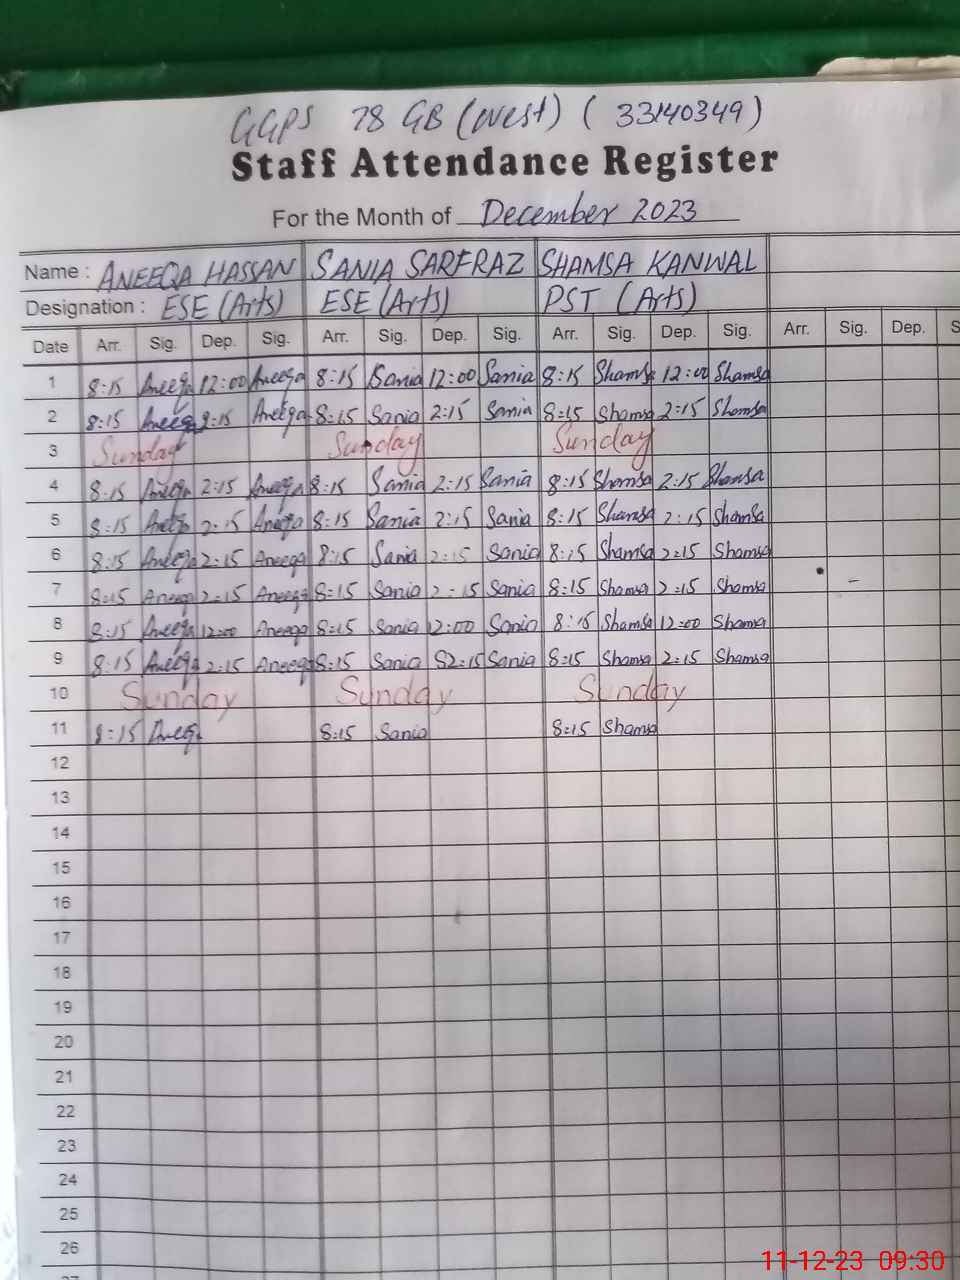 GGPS 78 GB (west) ( 33140349 )
Staff Attendance Register
For the Month of December 2023
Name : ANEEQA HASSAN SANIA SARFRAZ SHAMSA KANWAL
Designation : ESE (Arts) ESE (Arts) PST (Arts)
Date Arr. Sig. Dep. Sig. Arr. Sig. Dep. Sig. Arr. Sig. Dep. Sig. Arr. Sig. Dep. S
1 8:15 Aneeqa 12:00 Aneeqa 8:15 Sania 12:00 Sania 8:15 Shamsa 12:00 Shamsa
2 8:15 Aneeqa 2:15 Aneeqa 8:15 Sania 2:15 Sania 8:15 Shamsa 2:15 Shamsa
3 Sunday Sunday Sunday
4 8:15 Aneeqa 2:15 Aneeqa 8:15 Sania 2:15 Sania 8:15 Shamsa 2:15 Shamsa
5 8:15 Aneeqa 2:15 Aneeqa 8:15 Sania 2:15 Sania 8:15 Shamsa 2:15 Shamsa
6 8:15 Aneeqa 2:15 Aneeqa 8:15 Sania 2:15 Sania 8:15 Shamsa 2:15 Shamsa
7 8:15 Aneeqa 2:15 Aneeqa 8:15 Sania 2:15 Sania 8:15 Shamsa 2:15 Shamsa
8 8:15 Aneeqa 12:00 Aneeqa 8:15 Sania 12:00 Sania 8:15 Shamsa 12:00 Shamsa
9 8:15 Aneeqa 2:15 Aneeqa 8:15 Sania 82:15 Sania 8:15 Shamsa 2:15 Shamsa
10 Sunday Sunday Sunday
11 8:15 Aneeqa 8:15 Sania 8:15 Shamsa
12
13
14
15
16
17
18
19
20
21
22
23
24
25
26
27
11-12-23 09:30